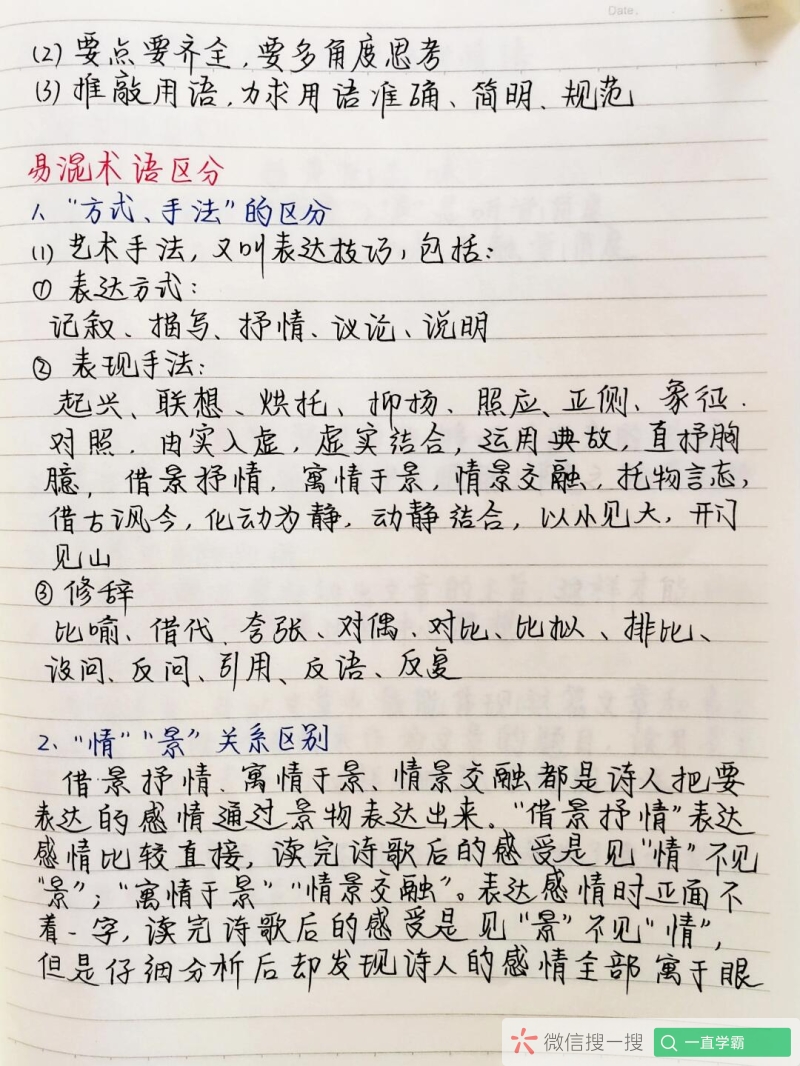 Date.
(2) 要点要齐全,要多角度思考
(3) 推敲用语,力求用语准确、简明、规范
易混术语区分
1、“方式、手法”的区分
(1) 艺术手法,又叫表达技巧,包括:
① 表达方式:
记叙、描写、抒情、议论、说明
② 表现手法:
起兴、联想、烘托、抑扬、照应、正侧、象征.
对照.由实入虚,虚实结合,运用典故,直抒胸
臆,借景抒情,寓情于景,情景交融,托物言志,
借古讽今,化动为静,动静结合,以小见大,开门
见山
③ 修辞
比喻、借代、夸张、对偶、对比、比拟、排比、
设问、反问、引用、反语、反复
2、“情”“景”关系区别
借景抒情、寓情于景、情景交融都是诗人把要
表达的感情通过景物表达出来。“借景抒情”表达
感情比较直接,读完诗歌后的感受是见“情”不见
“景”;“寓情于景”“情景交融”。表达感情时正面不
着一字,读完诗歌后的感受是见“景”不见“情”,
但是仔细分析后却发现诗人的感情全部寓于眼
微信搜一搜
一直学霸